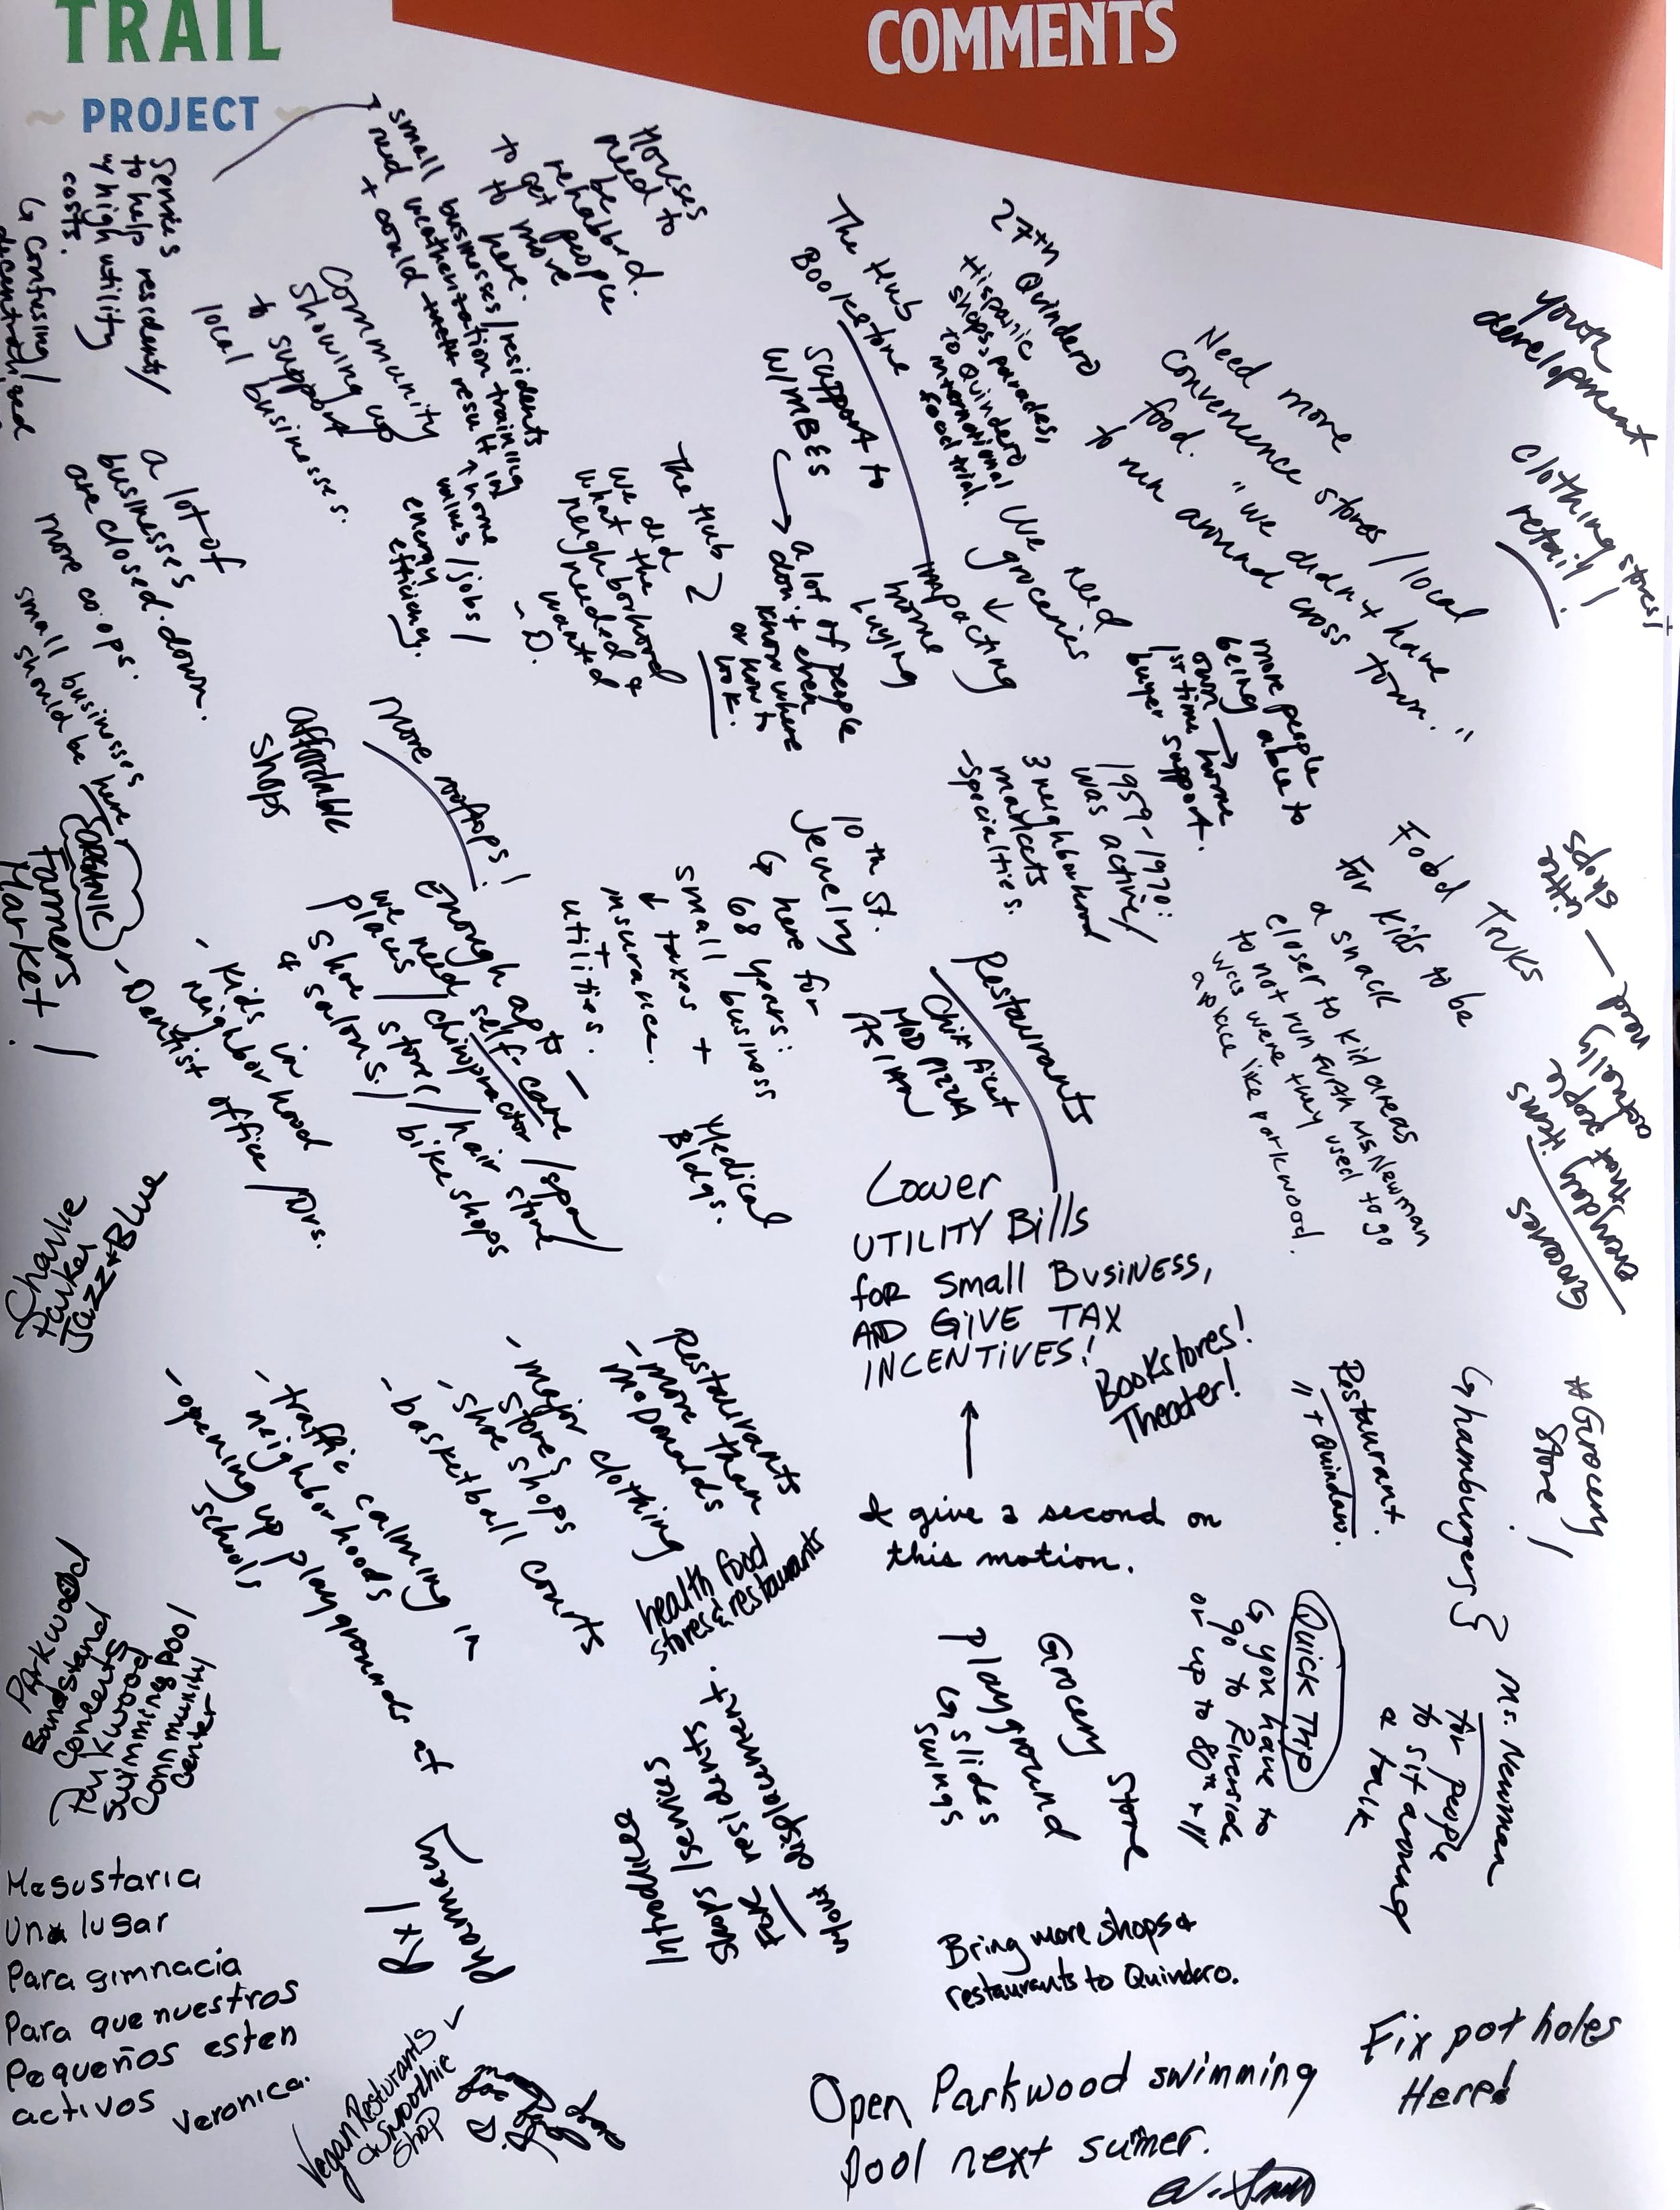 TRAIL
PROJECT
COMMENTS
Services
to help residents/
w/ high utility
costs.
↳ Confusing/
small businesses/residents
need weatherization training
+ could result in
↑ home
values/jobs/
energy
efficiency.
Houses
need to
be
rehabbed.
to get people
to move
here.
Community
showing up
to support
local businesses.
The Hub
Bookstore
Support to
W/MBES
a lot of people
don't even
know where
or how to
look.
27th Quindaro
Hispanic
shops, parades,
to Quindaro
international
food trial.
Need more
convenience stores / local
food. "we didn't have
to run around cross town."
youth
development
clothing stores!
retail!
We need
groceries
↓
impacting
home
buying
The Hub
We did
what the
neighborhood
needed &
wanted
- D.
a lot of
businesses
are closed down.
more co ops.
small businesses
should be here
ORGANIC
Farmers
Market!
Affordable
shops
More rooftops!
more people
being able to
own →
1st time home
buyer support.
1959-1970:
was active/
3 neighborhood
markets
- specialties.
10th St.
Jewelry
↳ here for
68 years:
small business
↓ taxes +
insurance.
+
utilities.
Enough apts -
we need self-care
places / chiropractor / spa /
shoe stores / hair store
& salons. / bike shops
- Kids in
neighborhood
- Dentist office / Drs.
Medical
Bldgs.
Restaurants
Chik filet
MOD PIZZA
ASIAN
Food Truks
For Kids to be
a snack
closer to kid areas
to not run FURTH Ms Newman
was were they used to go
a place like parkwood.
little
shops
— need
everyday items
that people
actually
Groceries
Lower
UTILITY Bills
for Small BUSINESS,
AND GIVE TAX
INCENTIVES!
Bookstores!
Theater!
I give a second on
this motion.
Charlie
Parker
Jazz & Blue
Restaurants
- more than
McDonalds
- major clothing
stores
- shoe shops
- basketball courts
- traffic calming in
neighborhoods
- opening up playgrounds at
schools
health food
stores & restaurants
Restaurant.
11th + Quindaro.
#Grocery
Store!
↳ hamburgers
Ms. Newman
for people
to sit among
& talk
Quick Trip
↳ you have to
go to Riverside
or up to 80th + 11
Grocery Store
Playground
↳ slides
swings
Parkwood
Bandstand
Concerts
Parkwood
Swimming Pool
Community
Center
Pharmacy
Rx!
Introduce
shops/services
For residents
w/out displacement.
Bring more shops &
restaurants to Quindaro.
Me sustaria
Una lugar
Para gimnacia
Para que nuestros
Pequeños esten
activos
Veronica.
Vegan Resturants
& Smoothie
Shop
Open Parkwood swimming
pool next sumer.
Fix pot holes
Here!